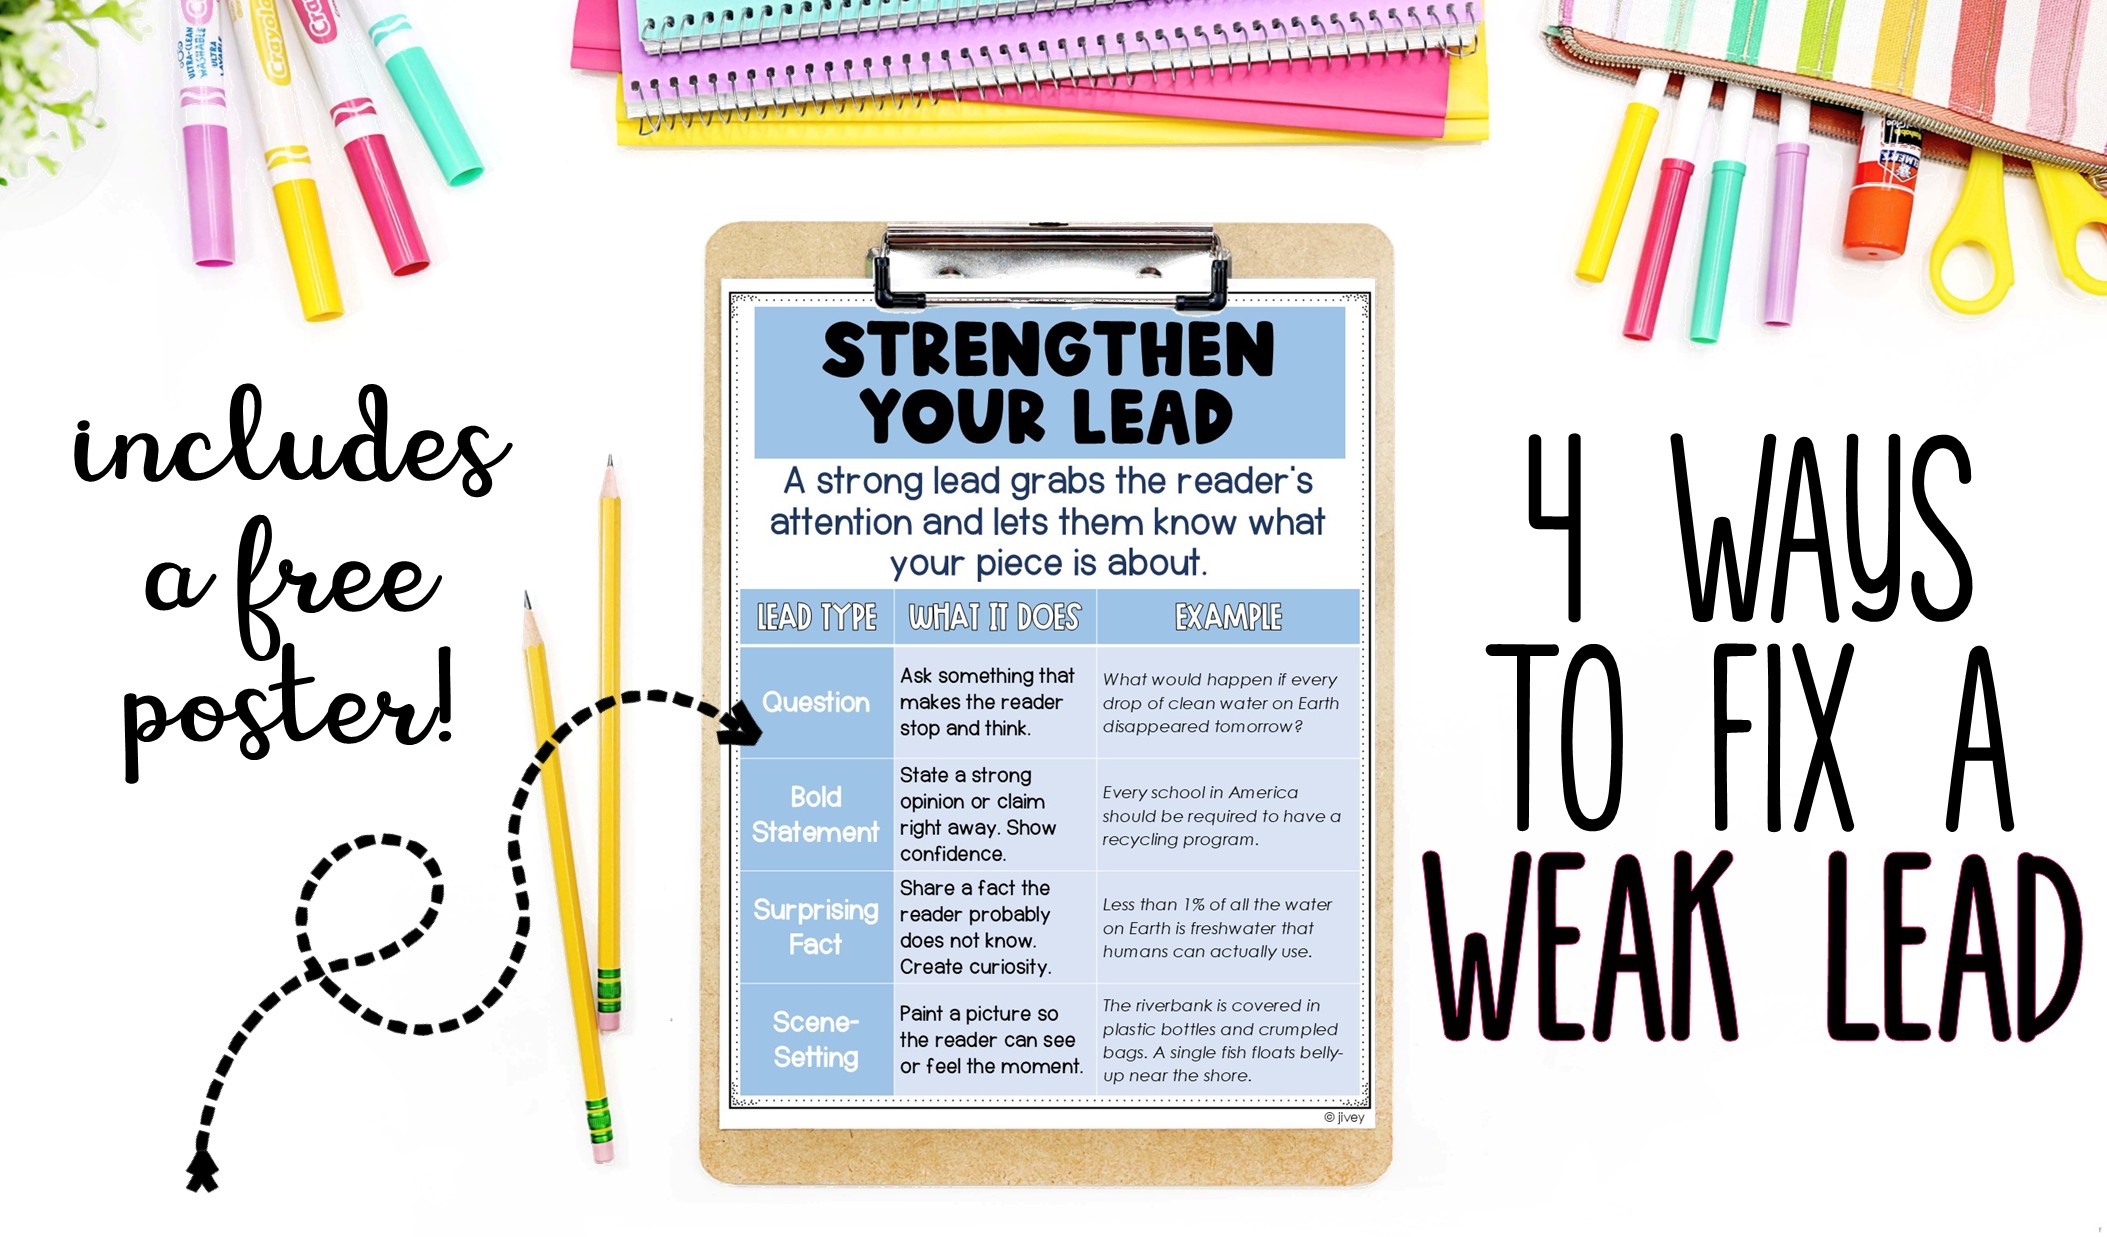 ULTRA-CLEAN
WASHABLE
ULTRA
LAVABLE
Crayola
Cra
ELMER'S
includes
a free
poster!
STRENGTHEN
YOUR LEAD
A strong lead grabs the reader's
attention and lets them know what
your piece is about.
LEAD TYPE WHAT IT DOES EXAMPLE
Question
Ask something that
makes the reader
stop and think.
What would happen if every
drop of clean water on Earth
disappeared tomorrow?
Bold
Statement
State a strong
opinion or claim
right away. Show
confidence.
Every school in America
should be required to have a
recycling program.
Surprising
Fact
Share a fact the
reader probably
does not know.
Create curiosity.
Less than 1% of all the water
on Earth is freshwater that
humans can actually use.
Scene-
Setting
Paint a picture so
the reader can see
or feel the moment.
The riverbank is covered in
plastic bottles and crumpled
bags. A single fish floats belly-
up near the shore.
© jivey
4 WAYS
TO FIX A
WEAK LEAD